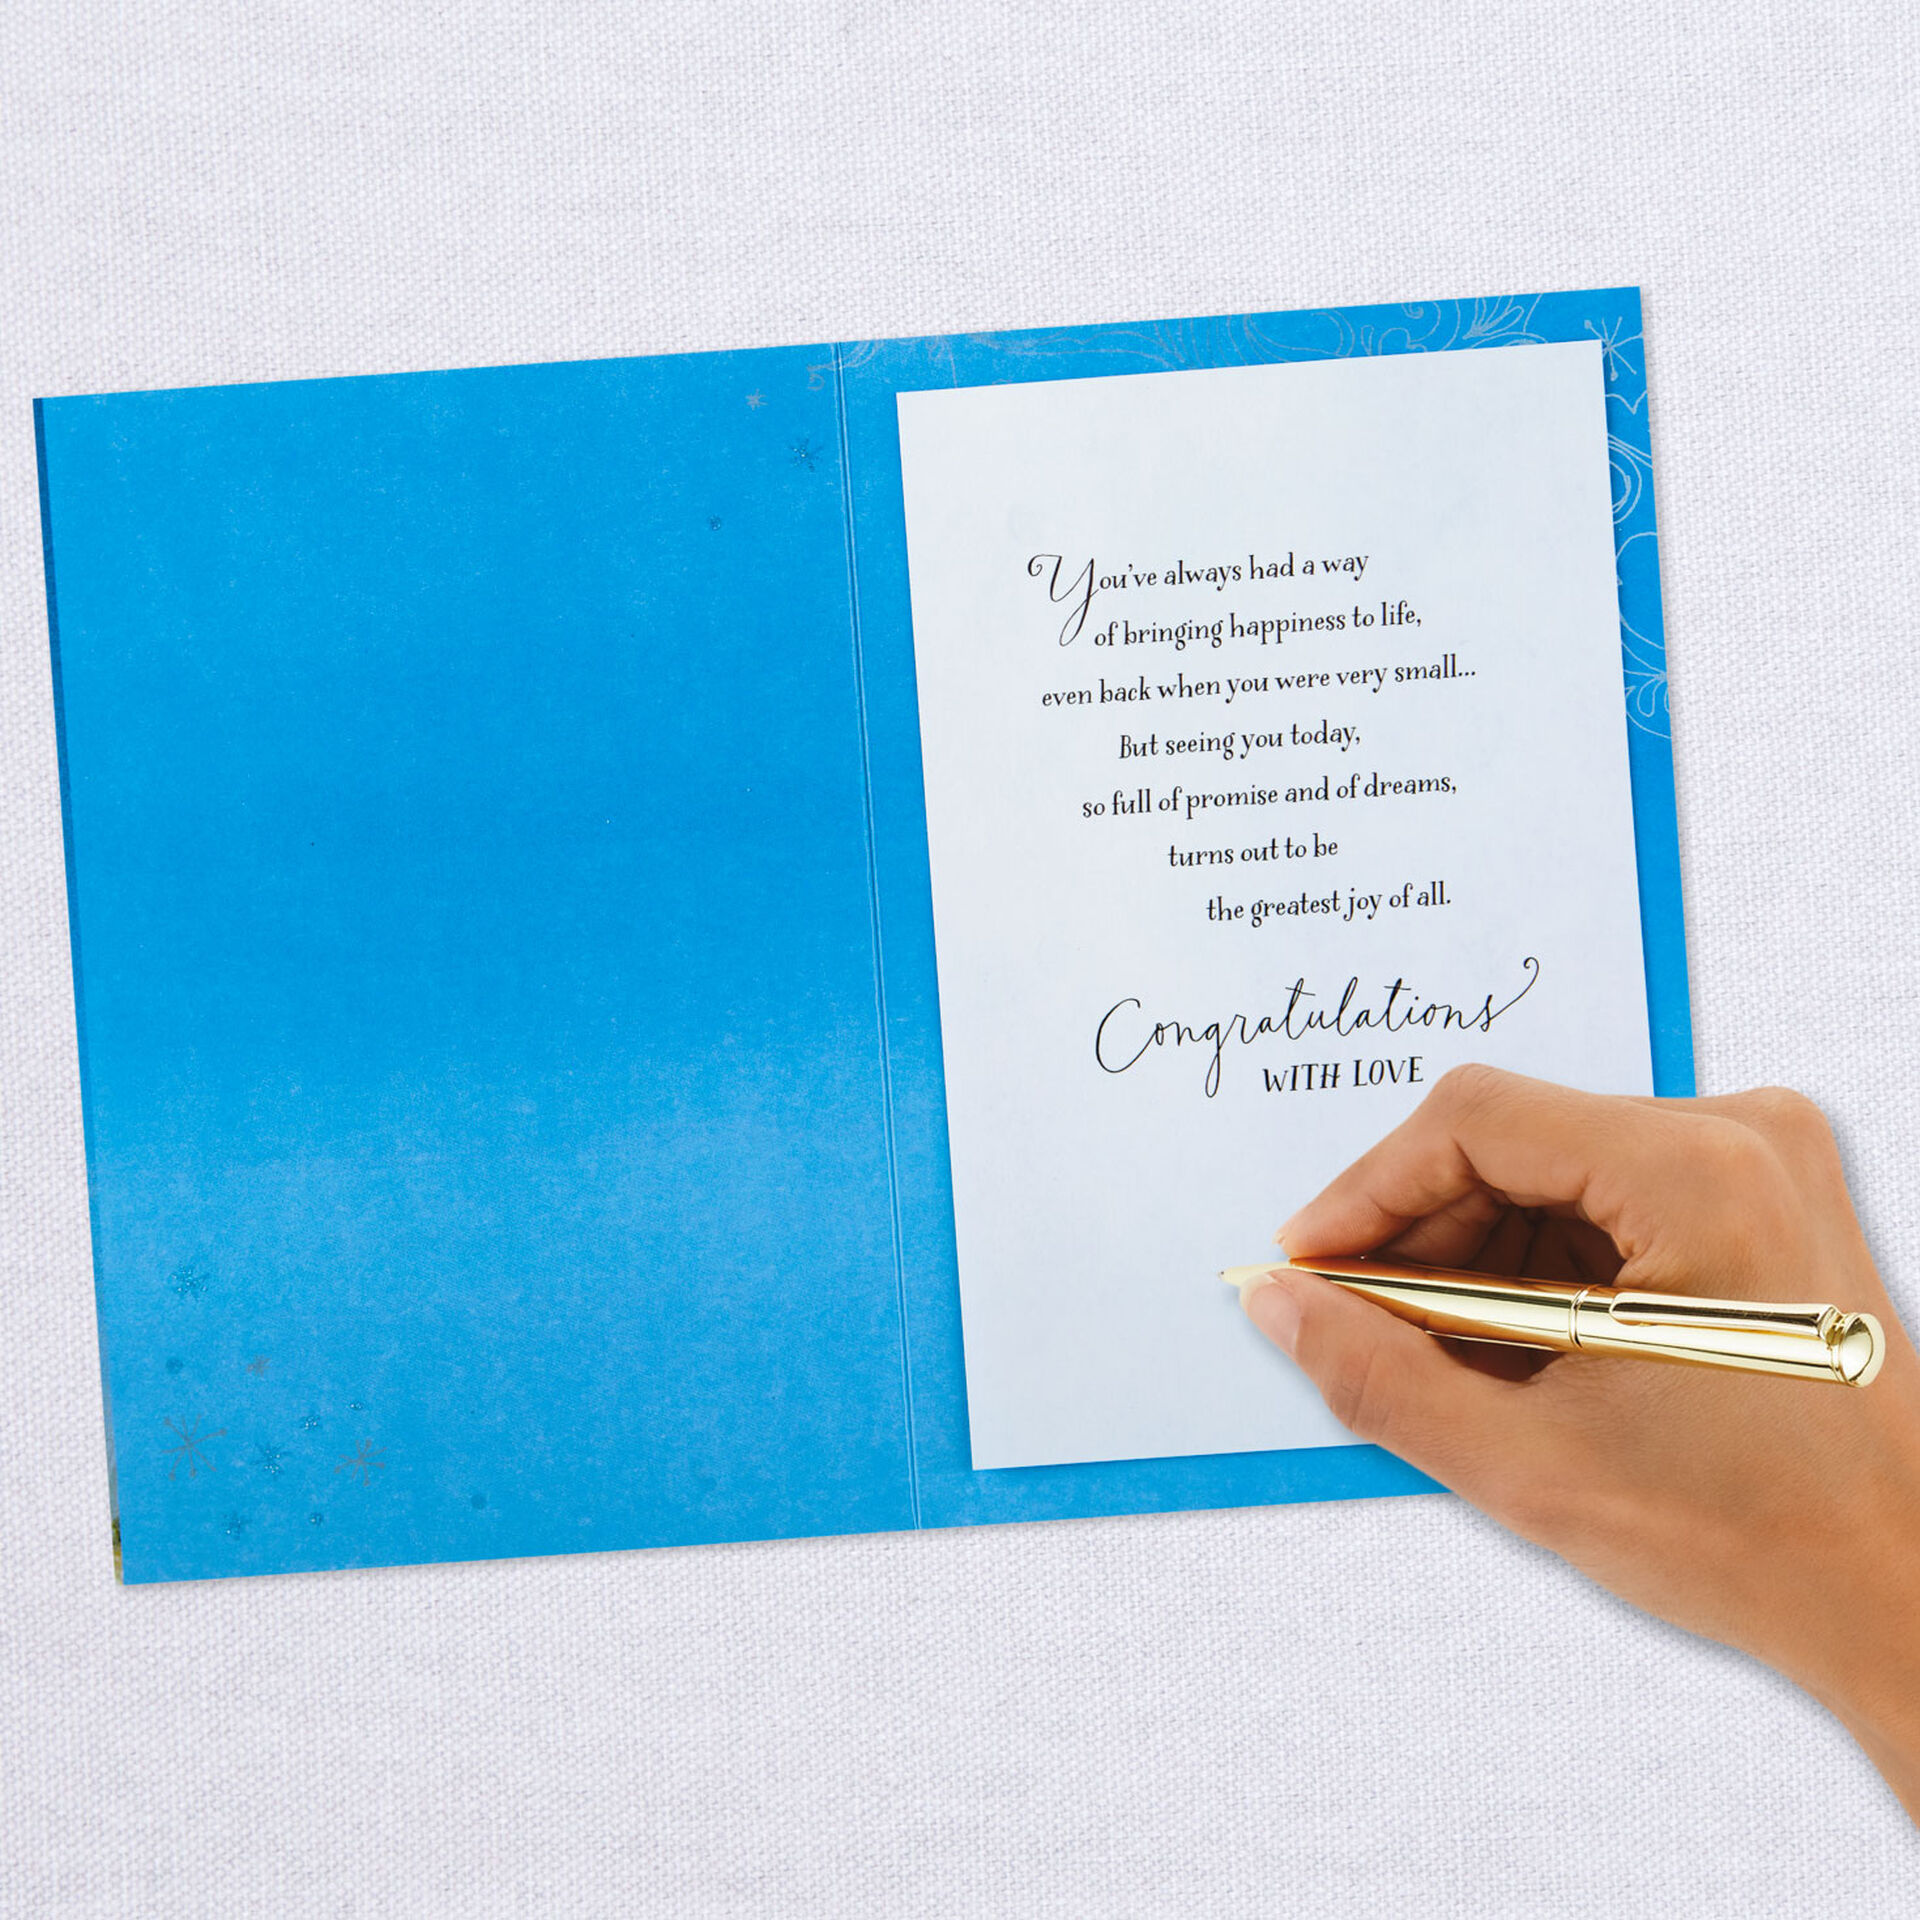 You've always had a way
of bringing happiness to life,
even back when you were very small...
But seeing you today,
so full of promise and of dreams,
turns out to be
the greatest joy of all.
Congratulations
WITH LOVE